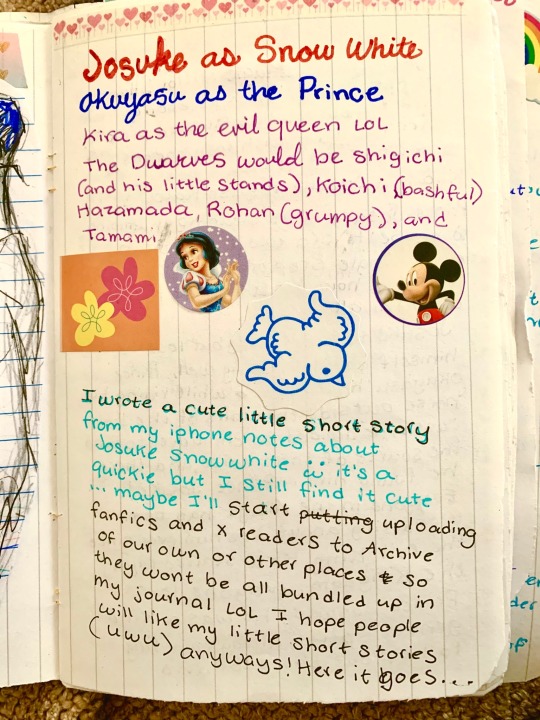 Josuke as Snow White
Okuyasu as the Prince
Kira as the evil queen LOL
The Dwarves would be Shigichi
(and his little stands), Koichi (bashful)
Hazamada, Rohan (grumpy), and
Tamami
I wrote a cute little short story
from my iphone notes about
Josuke snow white ü it's a
quickie but I still find it cute
... maybe I'll start putting uploading
fanfics and x readers to Archive
of our own or other places so
they wont be all bundled up in
my journal LOL I hope people
will like my little short stories
(uwu) anyways! Here it goes...